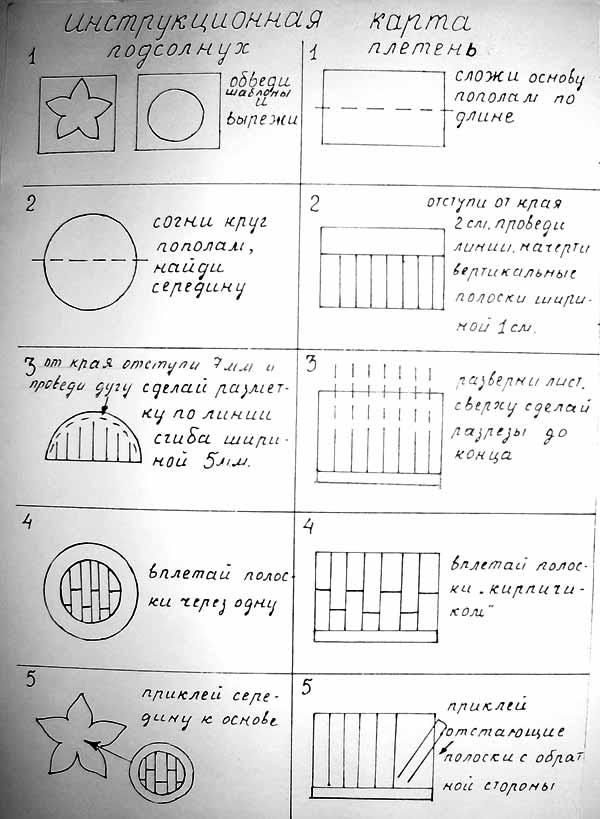 инструкционная карта
подсолнух
1
обведи
шаблоны
и
вырежи
2
согни круг
пополам,
найди
середину
3 от края отступи 7мм и
проведи дугу сделай размет-
ку по линии
сгиба шири-
ной 5мм.
4
вплетай полос-
ки через одну
5
приклей сере-
дину к основе
плетень
1
сложи основу
пополам по
длине
2
отступи от края
2см. проведи
линии. начерти
вертикальные
полоски шири-
ной 1см.
3
разверни лист.
сверху сделай
разрезы до
конца
4
вплетай полос-
ки „кирпичи-
ком"
5
приклей
отстающие
полоски с обрат
ной стороны